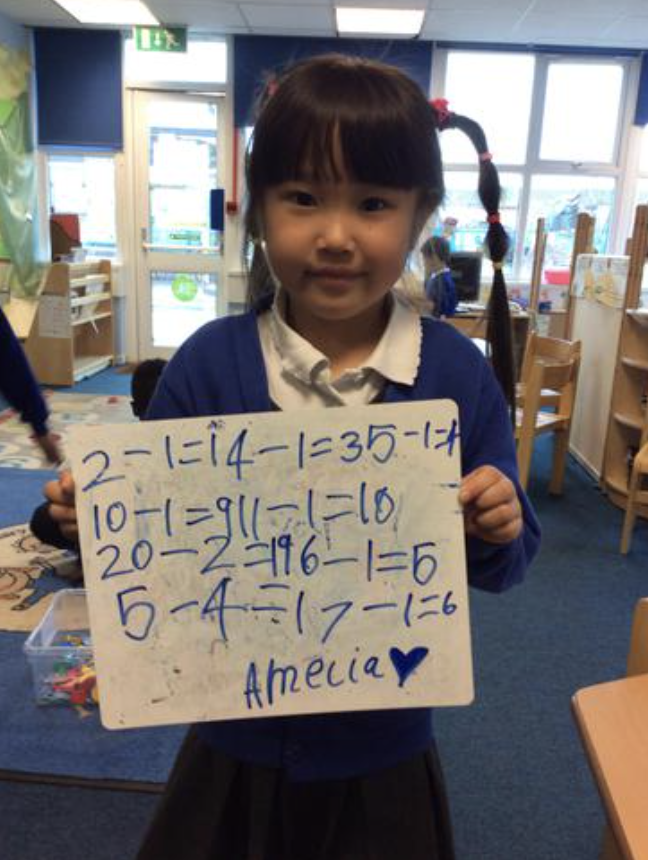 2-1=14-1=35-1=4
10-1=911-1=10
20-2=196-1=5
5-4=17-1=6
Amelia♥